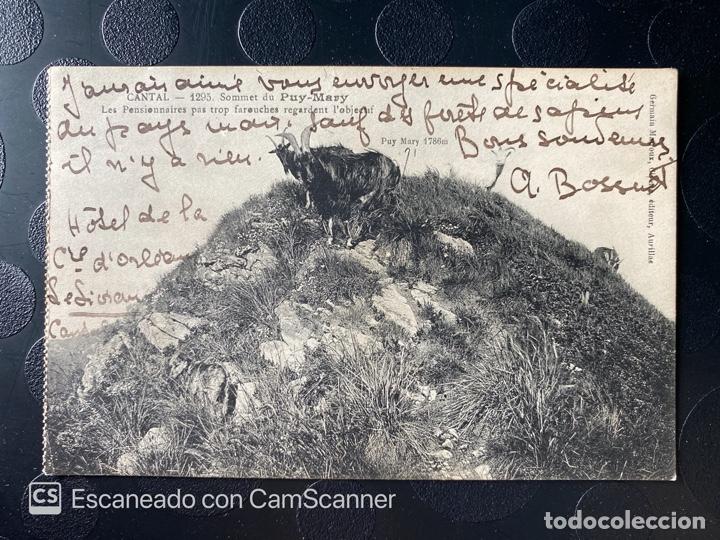 J'aurais aimé vous envoyer une spécialité
CANTAL — 1295. Sommet du Puy-Mary
Les Pensionnaires pas trop farouches regardent l'objectif
du pays mais, sauf des forêts de sapins
il n'y a rien. Bons souvenirs
Puy Mary 1786m
A. Bossuet
Hôtel de la
Cie d'Orléans
Le Lioran
Cantal
Germain éditeur, Aurillac
CS Escaneado con CamScanner
todocoleccion